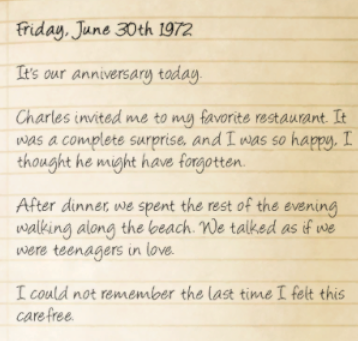 Friday, June 30th 1972
It's our anniversary today.
Charles invited me to my favorite restaurant. It
was a complete surprise, and I was so happy, I
thought he might have forgotten.
After dinner, we spent the rest of the evening
walking along the beach. We talked as if we
were teenagers in love.
I could not remember the last time I felt this
carefree.